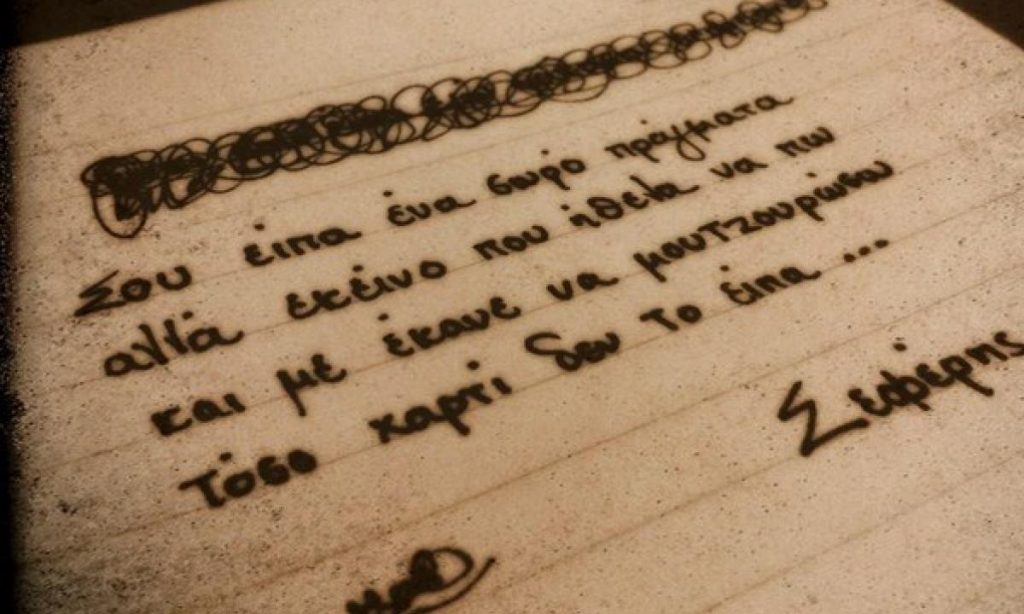 Σου είπα ένα σωρό πράγματα
αλλά εκείνο που ήθελα να πω
και με έκανε να μουτζουρώσω
τόσο χαρτί δεν το είπα...
Σεφέρης